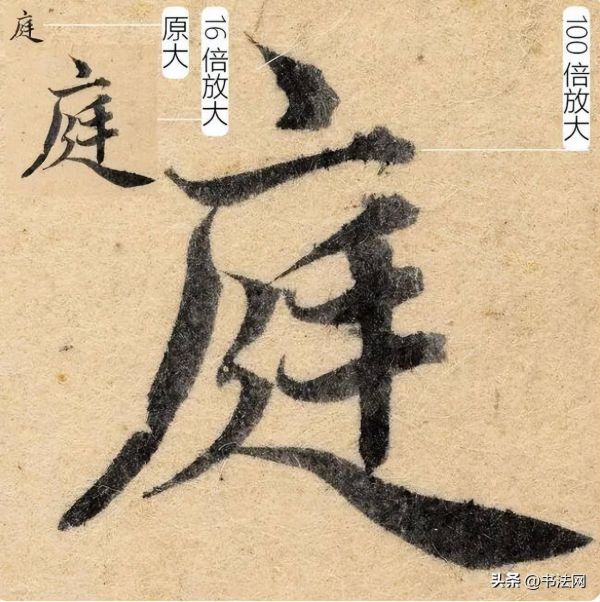 庭
原大
庭
16倍放大
庭
100倍放大
头条@书法网